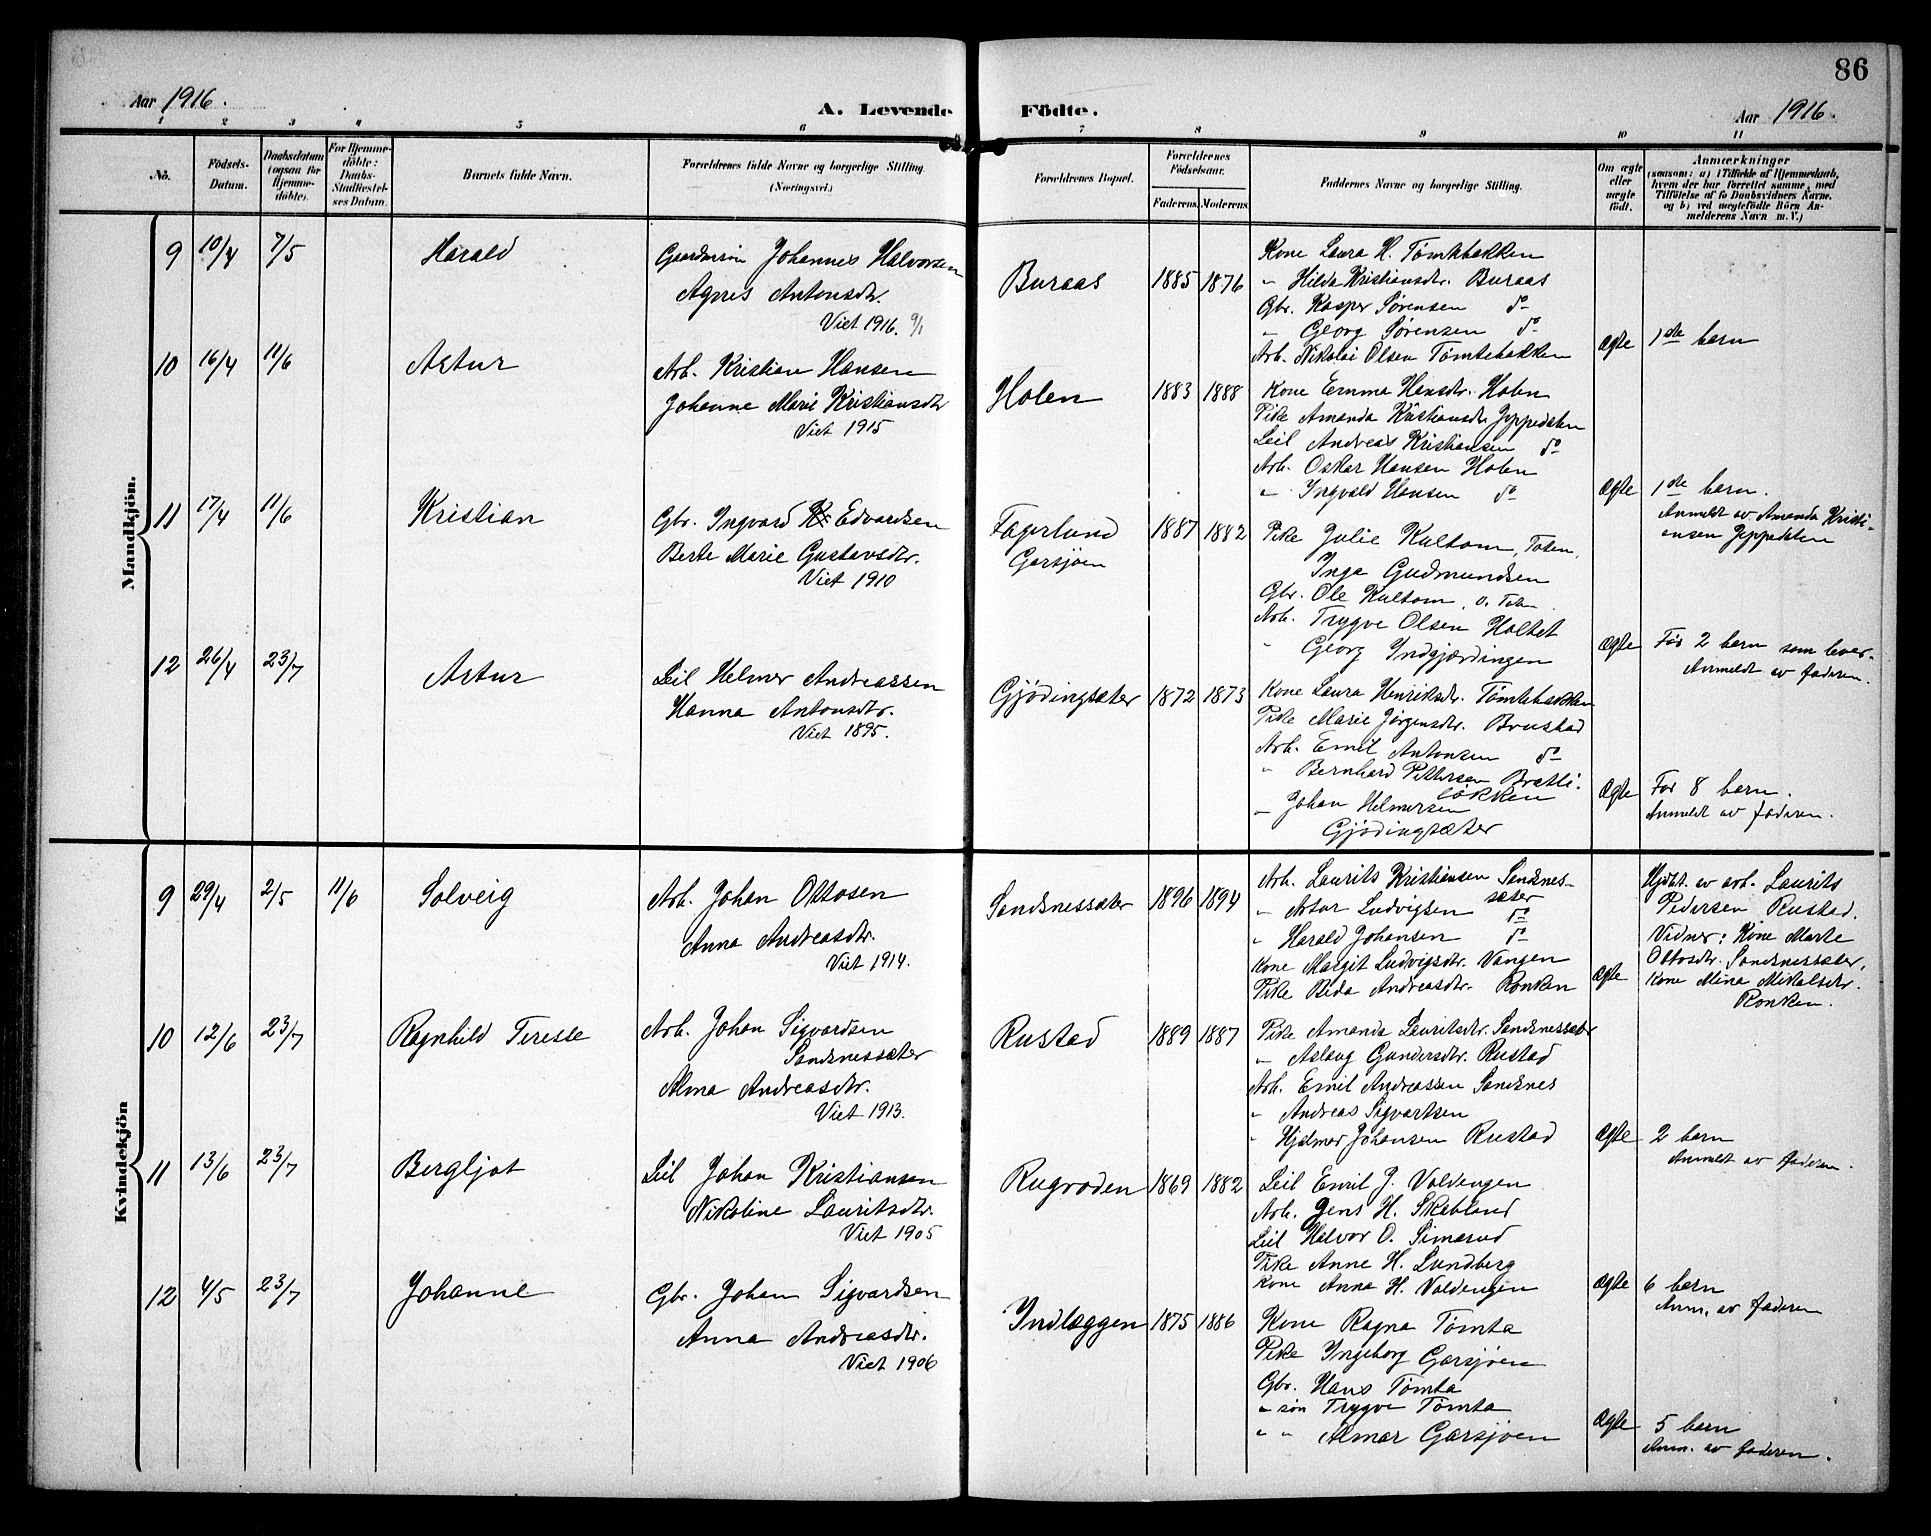 86
Aar 1916.
A. Levende Födte.
Aar 1916.
1 2 3 4 5 6 7 8 9 10 11
No.
Födsels-Datum.
Daabsdatum (ogsaa for Hjemmedöbte).
For Hjemmedöbte: Daabs-Stadfæstelses Datum.
Barnets fulde Navn.
Forældrenes fulde Navne og borgerlige Stilling (Næringsvei.)
Forældrenes Bopæl.
Forældrenes Födselsaar.
Faderens. Moderens.
Faddernes Navne og borgerlige Stilling.
Om ægte eller uægte födt.
Anmærkninger
(saasom: a) i Tilfælde af Hjemmedaab,
hvem der har forrettet samme, med
Tilföielse af to Daabsvidners Navne.
og b) ved uægtefödte Börn An-
melderens Navn m. V.)
Mandkjön.
9 10/4 7/5 Harald
Gaardmein Johannes Halvorsen
Agnes Antonsdtr.
Viet 1916. 9/1
Buraas 1885 1876
Kone Laura H. Tømtebakken
" Hilda Kristiansdtr. Buraas
Gbr. Kasper Sørensen do
" Georg Sørensen do
Arb. Nikolai Olsen Tømtebakken
Ægte 1ste barn
10 16/4 11/6 Artur
Arb. Kristian Hansen
Johanne Marie Kristiansdtr
Viet 1915
Holen 1883 1888
Kone Emma Hansdtr. Holen
Pike Amanda Kristiansdtr. Jeppedalen
Leil Andreas Kristiansen do
Arb. Oskar Hansen Holen
" Ingvald Hansen do
Ægte 1ste barn.
Anmeldt av Amanda Kristi-
ansen Jeppedalen
11 17/4 11/6 Kristian
Gbr. Ingvard Kr Edvardsen
Berte Marie Gustavsdtr.
Viet 1910
Fagerlund
Garsjøen
1887 1882
Pike Julie Kultom, Toten,
Inga Gudmundsen
Gbr. Ole Kultom, V. Toten
Arb. Trygve Olsen Holtet
" Georg Indgjærdingen
Ægte Før 2 barn som lever.
Anmeldt av faderen.
12 26/4 23/7 Artur
Leil Helmer Andreassen
Hanna Antonsdtr.
Viet 1895.
Gjødingsæter 1872 1873
Kone Laura Henriksdtr. Tømtebakken
Pike Marie Jørgensdtr. Brustad
Arb. Emil Antonsen do
" Bernhard Pettersen Brætli-
løkken
" Johan Helmersen
Gjødingsæter
Ægte Før 8 barn.
Anmeldt av faderen.
Kvindekjön
9 29/4 2/5 11/6 Solveig
Arb. Johan Ottosen
Anna Andreasdtr.
Viet 1914.
Sandsnessæter 1896 1894
Arb. Laurits Kristiansen Sandsnes-
sæter
" Artur Ludvigsen do
" Harald Johansen do
Kone Margit Ludvigsdtr. Vangen
Pike Beda Andreasdtr. Ronken
Ægte
Hjdbt. av arb. Laurits
Pedersen Rustad.
Vidner: Kone Marte
Ottosdtr. Sandsnessæter,
Kone Mina Mikalsdtr.
Ronken.
10 12/6 23/7 Ragnhild Terese
Arb. Johan Sigvardsen
Sandsnessæter
Alma Andreasdtr.
Viet 1913.
Rustad 1889 1887
Pike Amanda Lauritsdtr. Sandsnessæter
" Aslaug Gundersdtr. Rustad
Arb. Emil Andreassen Sandsnes
" Andreas Sigvartsen
" Hjalmar Johansen Rustad
Ægte 2 barn
Anmeldt av faderen.
11 13/6 23/7 Bergljot
Leil Johan Kristiansen
Nikoline Lauritsdtr.
Viet 1905
Rugroden 1869 1882
Leil Emil J. Valdengen
Arb. Jens H. Skabland
Leil Halvor O. Simarud
Pike Anne H. Lundberg
Kone Anna H. Valdengen
Ægte 6 barn
Anm. av faderen
12 4/5 23/7 Johanne
Gbr. Johan Sigvardsen
Anna Andreasdtr.
Viet 1906
Indlæggen 1875 1886
Kone Ragna Tømta
Pike Ingeborg Garsjøen
Gbr. Hans Tømta
" søn Trygve Tømta
" " Almar Garsjøen
Ægte 5 barn
Anm. av faderen.